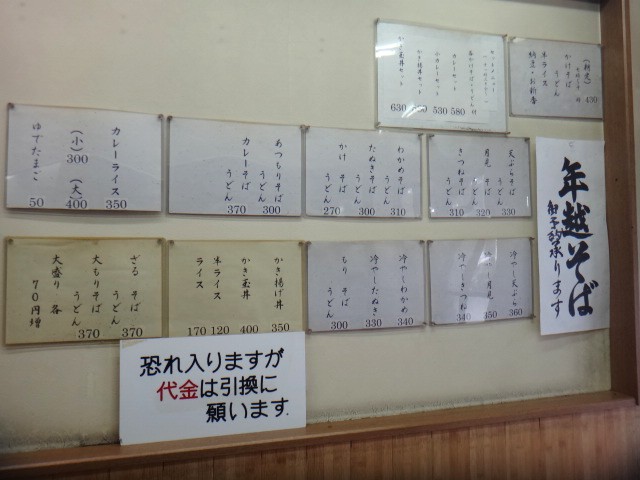 (朝定)
かけそば
うどん
半ライス
納豆・お新香
430
セットメニュー
カレーセット
小カレーセット
580
530
630
年越そば
御予約承ります
天ぷらそば
うどん 330
月見 そば
うどん 320
きつねそば
うどん 310
わかめそば
うどん 310
たぬきそば
うどん 300
かけ そば
うどん 270
あつもりそば
うどん 300
カレーそば
うどん 370
カレーライス 350
(小) 300
(大) 400
ゆでたまご 50
冷やし天ぷら 360
冷やし月見 350
冷やしきつね 340
冷やしわかめ 340
冷やしたぬき 330
もり そば
うどん 300
かき揚げ丼 350
かき玉丼 400
半ライス 120
ライス 170
ざる そば
うどん 370
大もりそば
うどん 370
大盛り 各
70円増
恐れ入りますが
代金は引換に
願います.